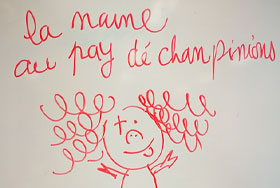 la naine
au pay dé chanpinions